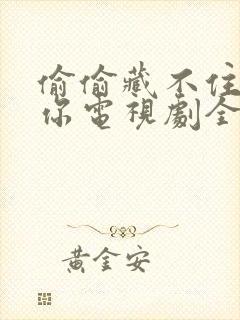 偷偷藏不住
你電視劇全
黃金安